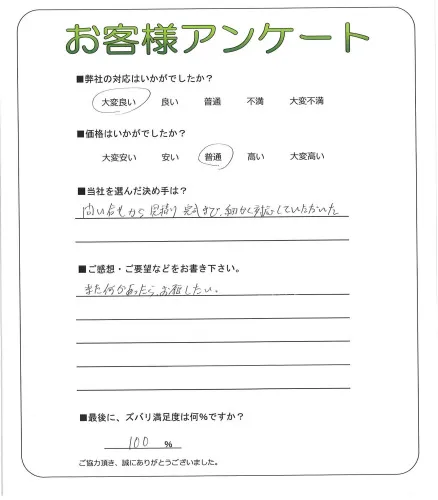 お客様アンケート
■弊社の対応はいかがでしたか?
大変良い 良い 普通 不満 大変不満
■価格はいかがでしたか?
大変安い 安い 普通 高い 大変高い
■当社を選んだ決め手は?
問い合せから見積り完成まで、細かく対応していただいた
■ご感想・ご要望などをお書き下さい。
また何かあったらお願したい。
■最後に、ズバリ満足度は何%ですか?
100 %
ご協力頂き、誠にありがとうございました。